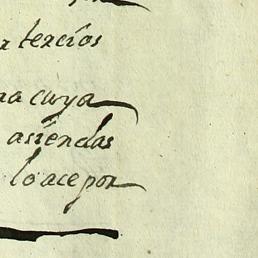 r tercios
na cuya
asiendas
lo acepor